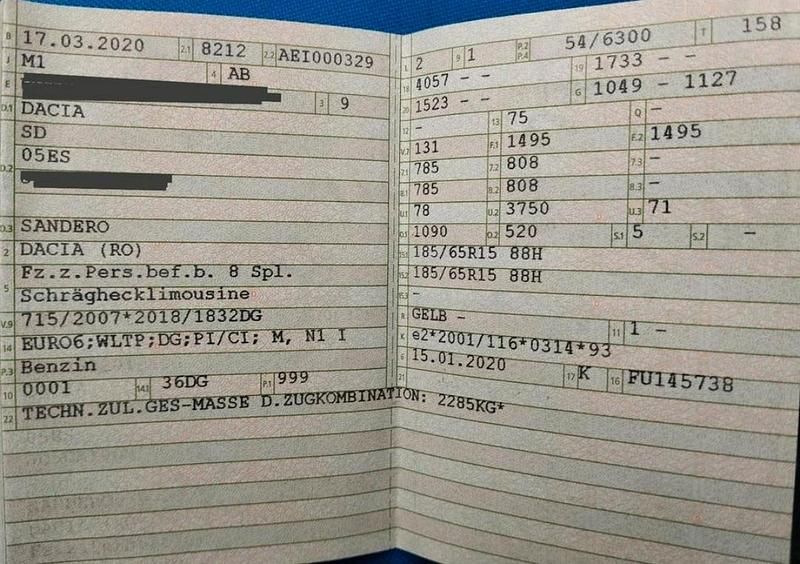 B 17.03.2020 2.1 8212 2.2 AEI000329
J M1 4 AB
E 3 9
D.1 DACIA
SD
05ES
D.2
D.3 SANDERO
2 DACIA (RO)
5 Fz.z.Pers.bef.b. 8 Spl.
Schräghecklimousine
V.9 715/2007*2018/1832DG
14 EURO6;WLTP;DG;PI/CI; M, N1 I
P.3 Benzin
10 0001 14.1 36DG P.1 999
22 TECHN.ZUL.GES-MASSE D.ZUGKOMBINATION: 2285KG*
L 2 9 1 P.2 P.4 54/6300 T 158
18 4057 - - 19 1733 - -
20 1523 - - G 1049 - 1127
12 - 13 75 Q -
V.7 131 F.1 1495 F.2 1495
7.1 785 7.2 808 7.3 -
8.1 785 8.2 808 8.3 -
U.1 78 U.2 3750 U.3 71
O.1 1090 O.2 520 S.1 5 S.2 -
15.1 185/65R15 88H
15.2 185/65R15 88H
15.3 -
R GELB - 11 1 -
K e2*2001/116*0314*93
6 15.01.2020 17 K 16 FU145738
21